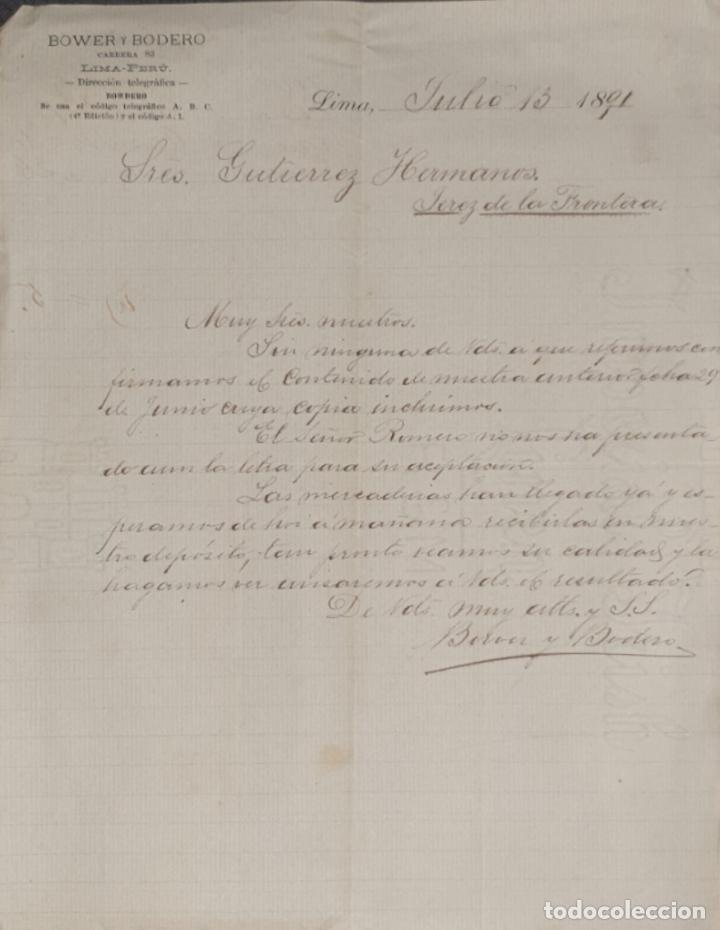 BOWER Y BODERO
CARRERA 83
LIMA-PERÚ.
— Dirección telegráfica —
BOWDERO
Se usa el código telegráfico A. B. C.
(4ª Edición) y el código A. 1.
Lima, Julio 13 1891
Sres. Gutierrez Hermanos.
Jerez de la Frontera.
Muy Sres. nuestros.
Sin ninguna de Vds. a que referirnos con
firmamos el contenido de nuestra anterior fecha 29
de Junio cuya copia incluimos.
El Señor Romero no nos ha presenta-
do aun la letra para su aceptación.
Las mercaderias han llegado yá y es-
peramos de hoi á mañana recibirlas en nues-
tro depósito, tan pronto veamos su calidad y la
hagamos ver avisaremos á Vds. el resultado.
De Vds. muy atts. y S.S.
Bower y Bodero
todocoleccion